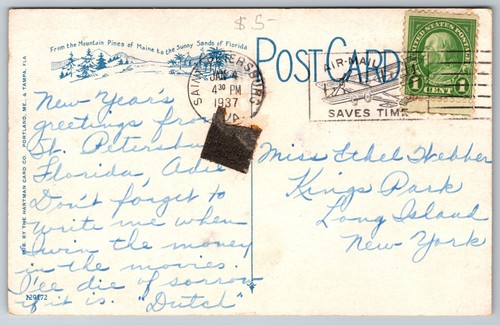 $5-
From the Mountain Pines of Maine to the Sunny Sands of Florida
POST CARD
SAINT PETERSBURG
JAN 4
4 30 PM
1937
AIR-MAIL
SAVES TIME
UNITED STATES POSTAGE
1 CENT 1
New Year's
greetings from
St. Petersburg
Florida, Adie
Don't forget to
write me when
I win the money
in the movies.
I'll die of sorrow
if it is. "Dutch"
Miss Ethel Webber
Kings Park
Long Island
New York
MFG. BY THE HARTMAN CARD CO. PORTLAND, ME. & TAMPA, FLA.